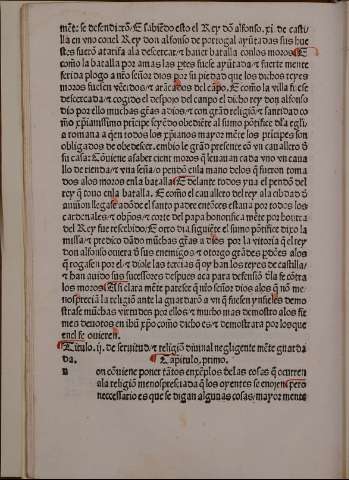 mẽt: se defendierõ: E sabiẽdo esto el Rey dõ alfonso. xi. de casti
lla en vno conel Rey don alfonso de portogal ayũtadas sus hue
stes fuerõ a tarifa ala descercar: & hauer batalla conlos moros. E
como la batalla por amas las ptes fuese ayũtada: & fuerte mente
ferida plogo a nr̃o señor dios por su piedad que los dichos reyes
moros fuesen vẽcidos: & arãcados del cãpo. E como la villa fuese
descercada: & cogido el despojo del canpo el dicho rey don alfonso
dio por ello muchas gr̃as a dios: & con grãd religiõ & santidad co
mo xp̃ianissimo prĩcipe seyẽdo obediẽte al sumo põtifice dela eglia
romana a q̃en todos los xp̃ianos mayor mẽte los prĩcipes son
obligados de obedescer. embio le grãd presente cõ vn cauallero d̃
su casa: Cõuiene a saber cient moros q̃ leuauan cada vno vn caua
llo de rienda: & vna seña o pendõ enla mano delos q̃ fueron toma
dos alos moros enla batalla. E delante todos yua el pendõ del
rey q̃ touo enla batalla. E como el cauallero del rey ala cibdad d̃
auiñon llegase adõde el santo padre entõces estaua por todos los
cardenales: & obp̃os: & corte del papa honorifica mẽte por honrra
del Rey fue rescebido: E otro dia siguiẽte el sumo põtifice dixo la
missa: & predico dãdo mũchas gr̃as a dios por la vitoria q̃ el rey
don alfonso ouiera d̃ sus enemigos: & otorgo grãdes pdões alos
q̃ rogasen por el: & diole las tercias q̃ oy han los reyes de castilla:
& han auido sus sucessores despues aca para defensiõ dla fe cõtra
los moros. Asi clara mẽte paresce q̃ nr̃o señor dios alos q̃ nõ me
nosprecia la religiõ ante la guardarõ a vn q̃ fuesen ynfieles demo
strase mũchas virtudes por ellos: & mucho mas demostro alos fir
mes deuotos en ihũ xp̃o como dicho es: & demostrara por los que
enel se ouieren.
Titulo. ij. de seruitud: & religiõ diuinal negligente mẽte guarda
da. Capitulo, primo.
n on cõuiene poner tãtos enxẽplos delas cosas q̃ ocurren
ala religiõ menospreciada q̃ los oyentes se enojen: pero
neccessario es que se digan algunas cosas: mayor mente